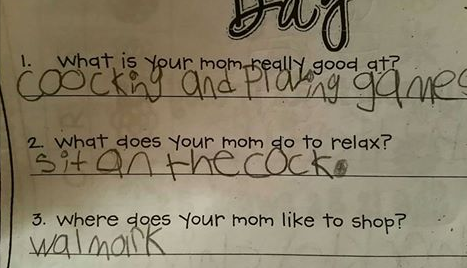 Day
1. What is your mom really good at?
coocking and Plaing games
2. What does your mom do to relax?
sit on the cock.
3. Where does your mom like to shop?
walmark